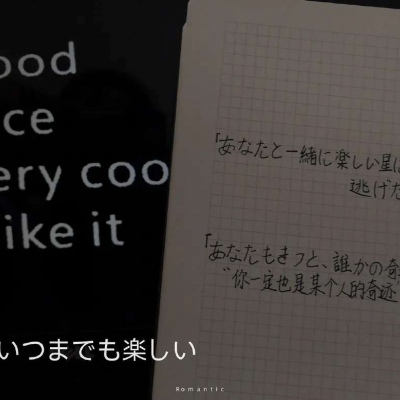 ood
ce
ery coo
ike it
「あなたと一緒に楽しい星に
逃げた
「あなたもきっと、誰かの奇
"你一定也是某个人的奇迹
いつまでも楽しい
Romantic